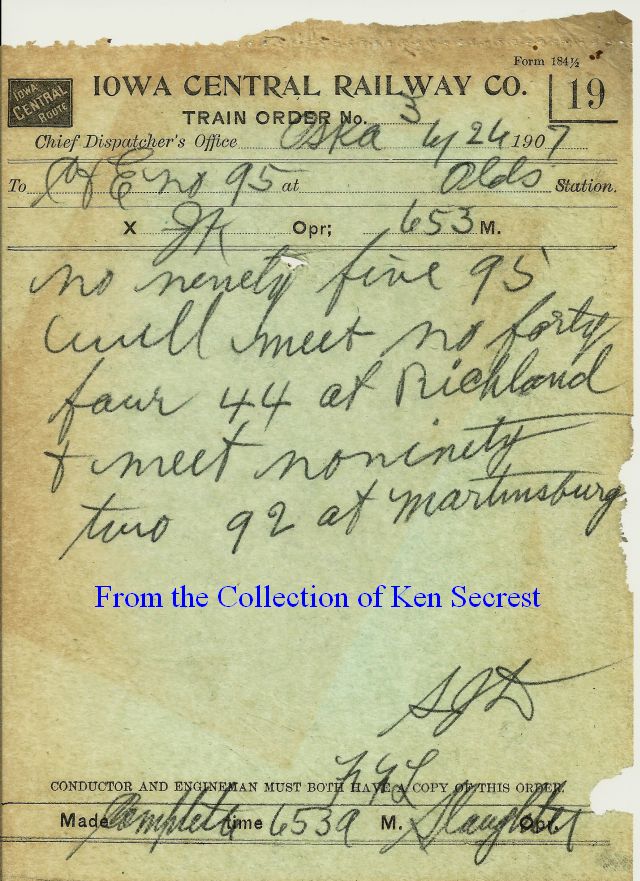 Form 184½
IOWA CENTRAL ROUTE
IOWA CENTRAL RAILWAY CO.
19
TRAIN ORDER No. 3
Chief Dispatcher's Office Oska 4/26 1907
To C & E no 95 at Olds Station.
X Opr; 653 M.
no ninety five 95
will meet no forty
four 44 at Richland
& meet no ninety
two 92 at Martinsburg
From the Collection of Ken Secrest
CONDUCTOR AND ENGINEMAN MUST BOTH HAVE A COPY OF THIS ORDER.
Made Complete time 653a M. Slaughter Opr.